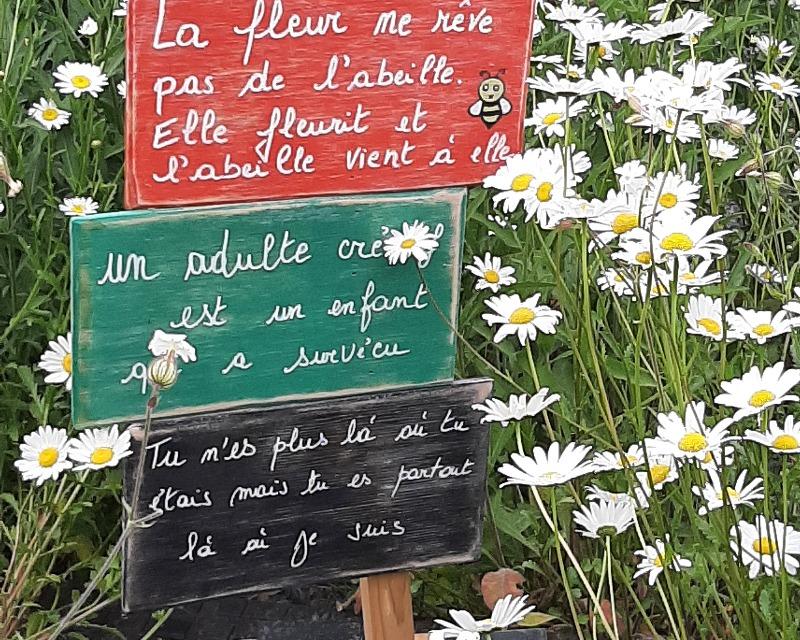 La fleur ne rêve
pas de l'abeille.
Elle fleurit et
l'abeille vient à elle
un adulte
est un enfant
a survécu
Tu n'es plus là où tu
étais mais tu es partout
là où je suis